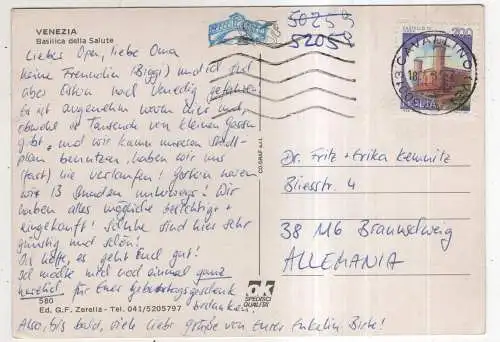 VENEZIA
Basilica della Salute
50259
52059
200
CAVALLINO
Lieber Opa, liebe Oma
meine Freundin (Biggi) und ich sind
aber schon nach Venedig gefahren.
Es ist angenehm warm hier und,
obwohl es Tausende von kleinen Gassen
gibt, und wir kaum unseren Stadt-
plan benutzen, haben wir uns
(fast) nie verlaufen! Gestern waren
wir 13 Stunden unterwegs! Wir
haben alles mögliche besichtigt +
eingekauft! Schuhe sind hier sehr
günstig und schön!
Ich hoffe, es geht Euch gut!
Ich möchte mich noch einmal ganz
herzlich für Euer Geburtstagsgeschenk
bedanken!
Also, bis bald, viele liebe Grüße von Eurer Enkelin Birte!
Dr. Fritz + Erika Kemnitz
Bliesstr. 4
38 116 Braunschweig
ALLEMANIA
CO.GRAF s.r.l.
580
Ed. G.F. Zerella - Tel. 041/5205797
OK
SPEDISCI
QUALITÀ